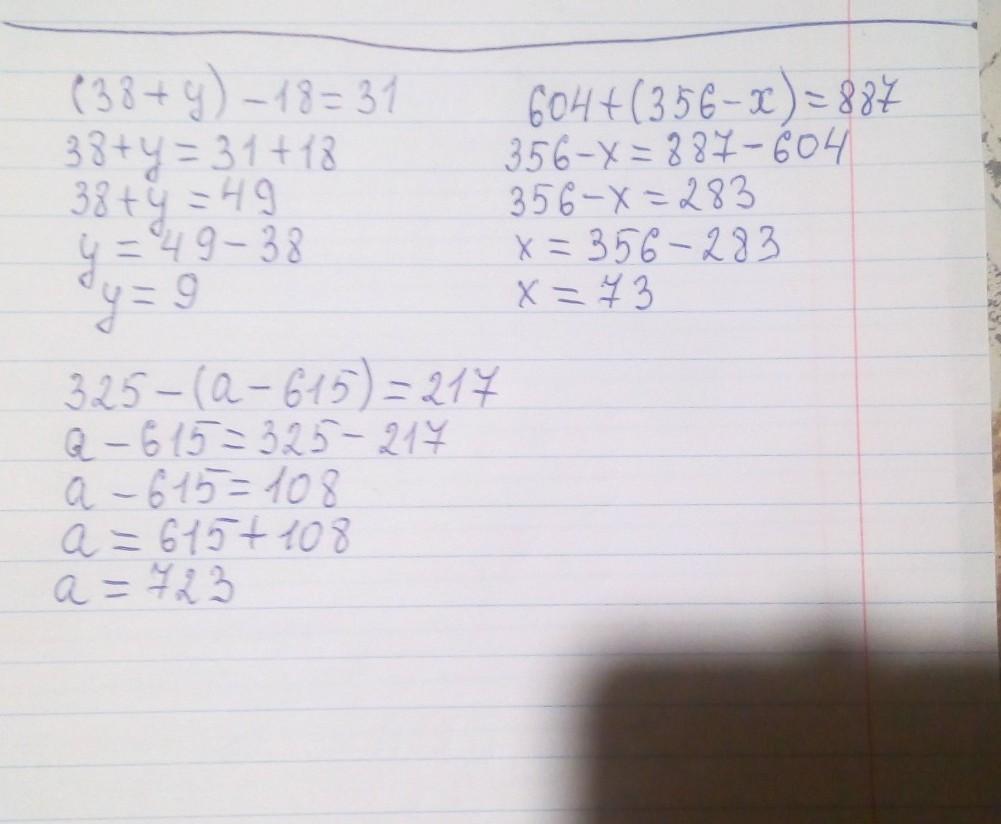 (38+y)-18=31
38+y=31+18
38+y=49
y=49-38
y=9
604+(356-x)=887
356-x=887-604
356-x=283
x=356-283
x=73
325-(a-615)=217
a-615=325-217
a-615=108
a=615+108
a=723